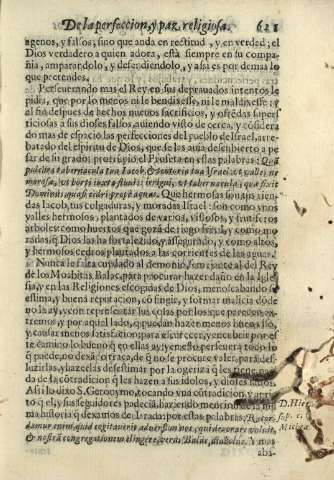 De la perfeccion, y paz religiosa. 621
agenos, y falsos, sino que anda en rectitud, y en verdad; el
Dios verdadero a quien adora, està siempre en su compa-
ñia, amparandolo, y defendiendolo, y assi es por demas lo
que pretendes.
Perseuerando mas el Rey en sus deprauados intentos le
pidia, que por lo menos ni le bendixesse, ni le maldixesse: y
al fin despues de hechos nueuos sacrificios, y ofrēdas super-
sticiosas a sus dioses falsos, auiendo visto de cerca, y cōsidera
do mas de espacio las perfecciones del pueblo de Israel, arre-
batado del espiritu de Dios, que se los auia descubierto a pe
sar de su grado; prorrūpio el Profeta en estas palabras: Quā
pulchra tabernacula tua Iacob, & tentoria tua Israel, vt valles ne-
morosa, vt horti iuxta fluuios irrigui, vt tabernacula, quæ fixit
Dominus, quasi cedri propè aquas. Que hermosas son tus vien-
das Iacob, tus colgaduras, y moradas Israel: son como vnos
valles hermosos, plantados de varios, vistosos, y frutiferos
arboles: como huertos que gozā de riego fertil, y como mo
radas, q̄ Dios las ha fortalezido, y assegurado, y como altos,
y hermosos cedros plantados a las corrientes de las aguas.
Nunca le falta cuydado al demonio, semejante al del Rey
de los Moabitas Balac, para procurar hazer daño en la Igle
sia, y en las Religiones escogidas de Dios, menoscabando su
estima, y buena reputacion, cō fingir, y formar malicia dōde
no la ay, y con representar sus cosas por los que pareden, ex-
tremo, y por aquel lado, q̄ puedan hazer menos
y causar menos satisfacion para escurecer, y encubrir por es
te camino lo bueno q̄ en ellas ay, y en esto perseuera todo lo
q̄ puede, no dexādo traça, de q̄ no se procure valer, para des-
luzirlas, y hazerlas desestimar por la ogeriza q̄ les
da de la cōtradicion q̄ les hazen a sus idolos, y dioses falsos.
Assi lo dixo S. Geronymo, tocando vna cōtradicion, y
to q̄ el, y sus seguidores padeciā, haziendo mencion de la mis
ma historia q̄ dexamos declarada: por estas palabras,
damur enim, quid cogitauerit aduersum nos,
& nostrā congregationem
aba-
D. Hie
sup. c.
Michea.